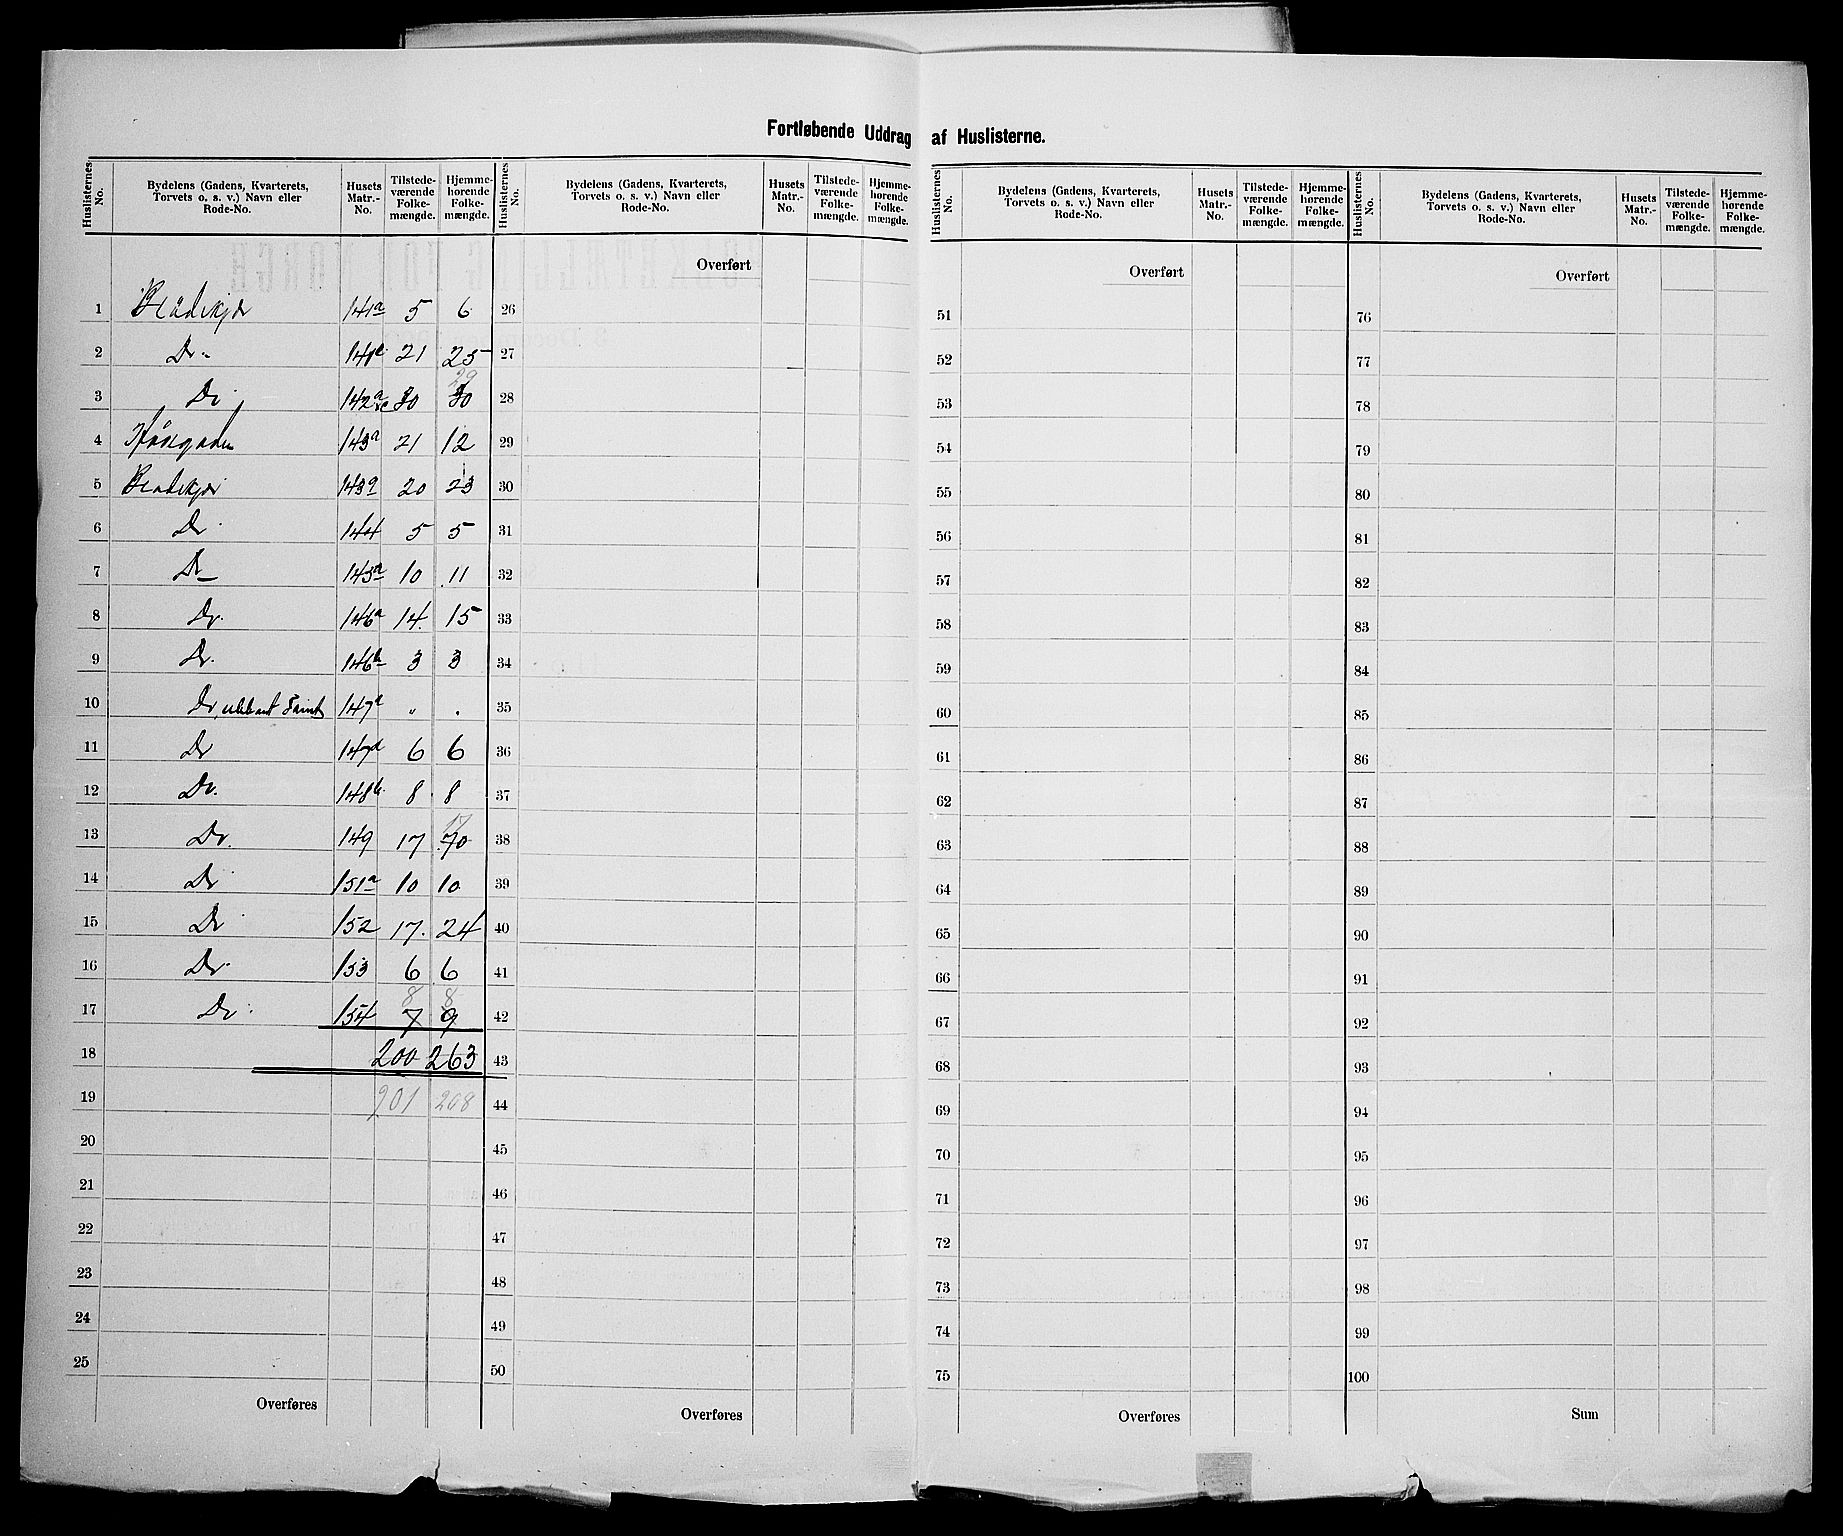 Fortløbende Uddrag af Huslisterne.
Huslisternes No. Bydelens (Gadens, Kvarterets, Torvets o. s. v.) Navn eller Rode-No. Husets Matr.-No. Tilstedeværende Folkemængde. Hjemmehørende Folkemængde.
Huslisternes No. Bydelens (Gadens, Kvarterets, Torvets o. s. v.) Navn eller Rode-No. Husets Matr.-No. Tilstedeværende Folkemængde. Hjemmehørende Folkemængde.
Huslisternes No. Bydelens (Gadens, Kvarterets, Torvets o. s. v.) Navn eller Rode-No. Husets Matr.-No. Tilstedeværende Folkemængde. Hjemmehørende Folkemængde.
Huslisternes No. Bydelens (Gadens, Kvarterets, Torvets o. s. v.) Navn eller Rode-No. Husets Matr.-No. Tilstedeværende Folkemængde. Hjemmehørende Folkemængde.
Overført Overført Overført
1 141a 5 6 26 51 76
2 Do 21 25 27 52 77
29
3 Do 30 30 28 53 78
4 143a 21 12 29 54 79
5 20 23 30 55 80
6 Do 144 5 5 31 56 81
7 Do 10 11 32 57 82
8 Do. 146a 14 15 33 58 83
9 Do. 146b 3 3 34 59 84
10 Do 147a " . 35 60 85
11 Do 147d 6 6 36 61 86
12 Do. 148b 8 8 37 62 87
17
13 Do. 149 17 70 38 63 88
14 Do 151a 10 10 39 64 89
15 Do 152 17 24 40 65 90
16 Do 153 6 6 41 66 91
8 8
17 Do 154 7 9 42 67 92
18 200 263 43 68 93
19 201 208 44 69 94
20 45 70 95
21 46 71 96
22 47 72 97
23 48 73 98
24 49 74 99
25 50 75 100
Overføres Overføres Overføres Sum